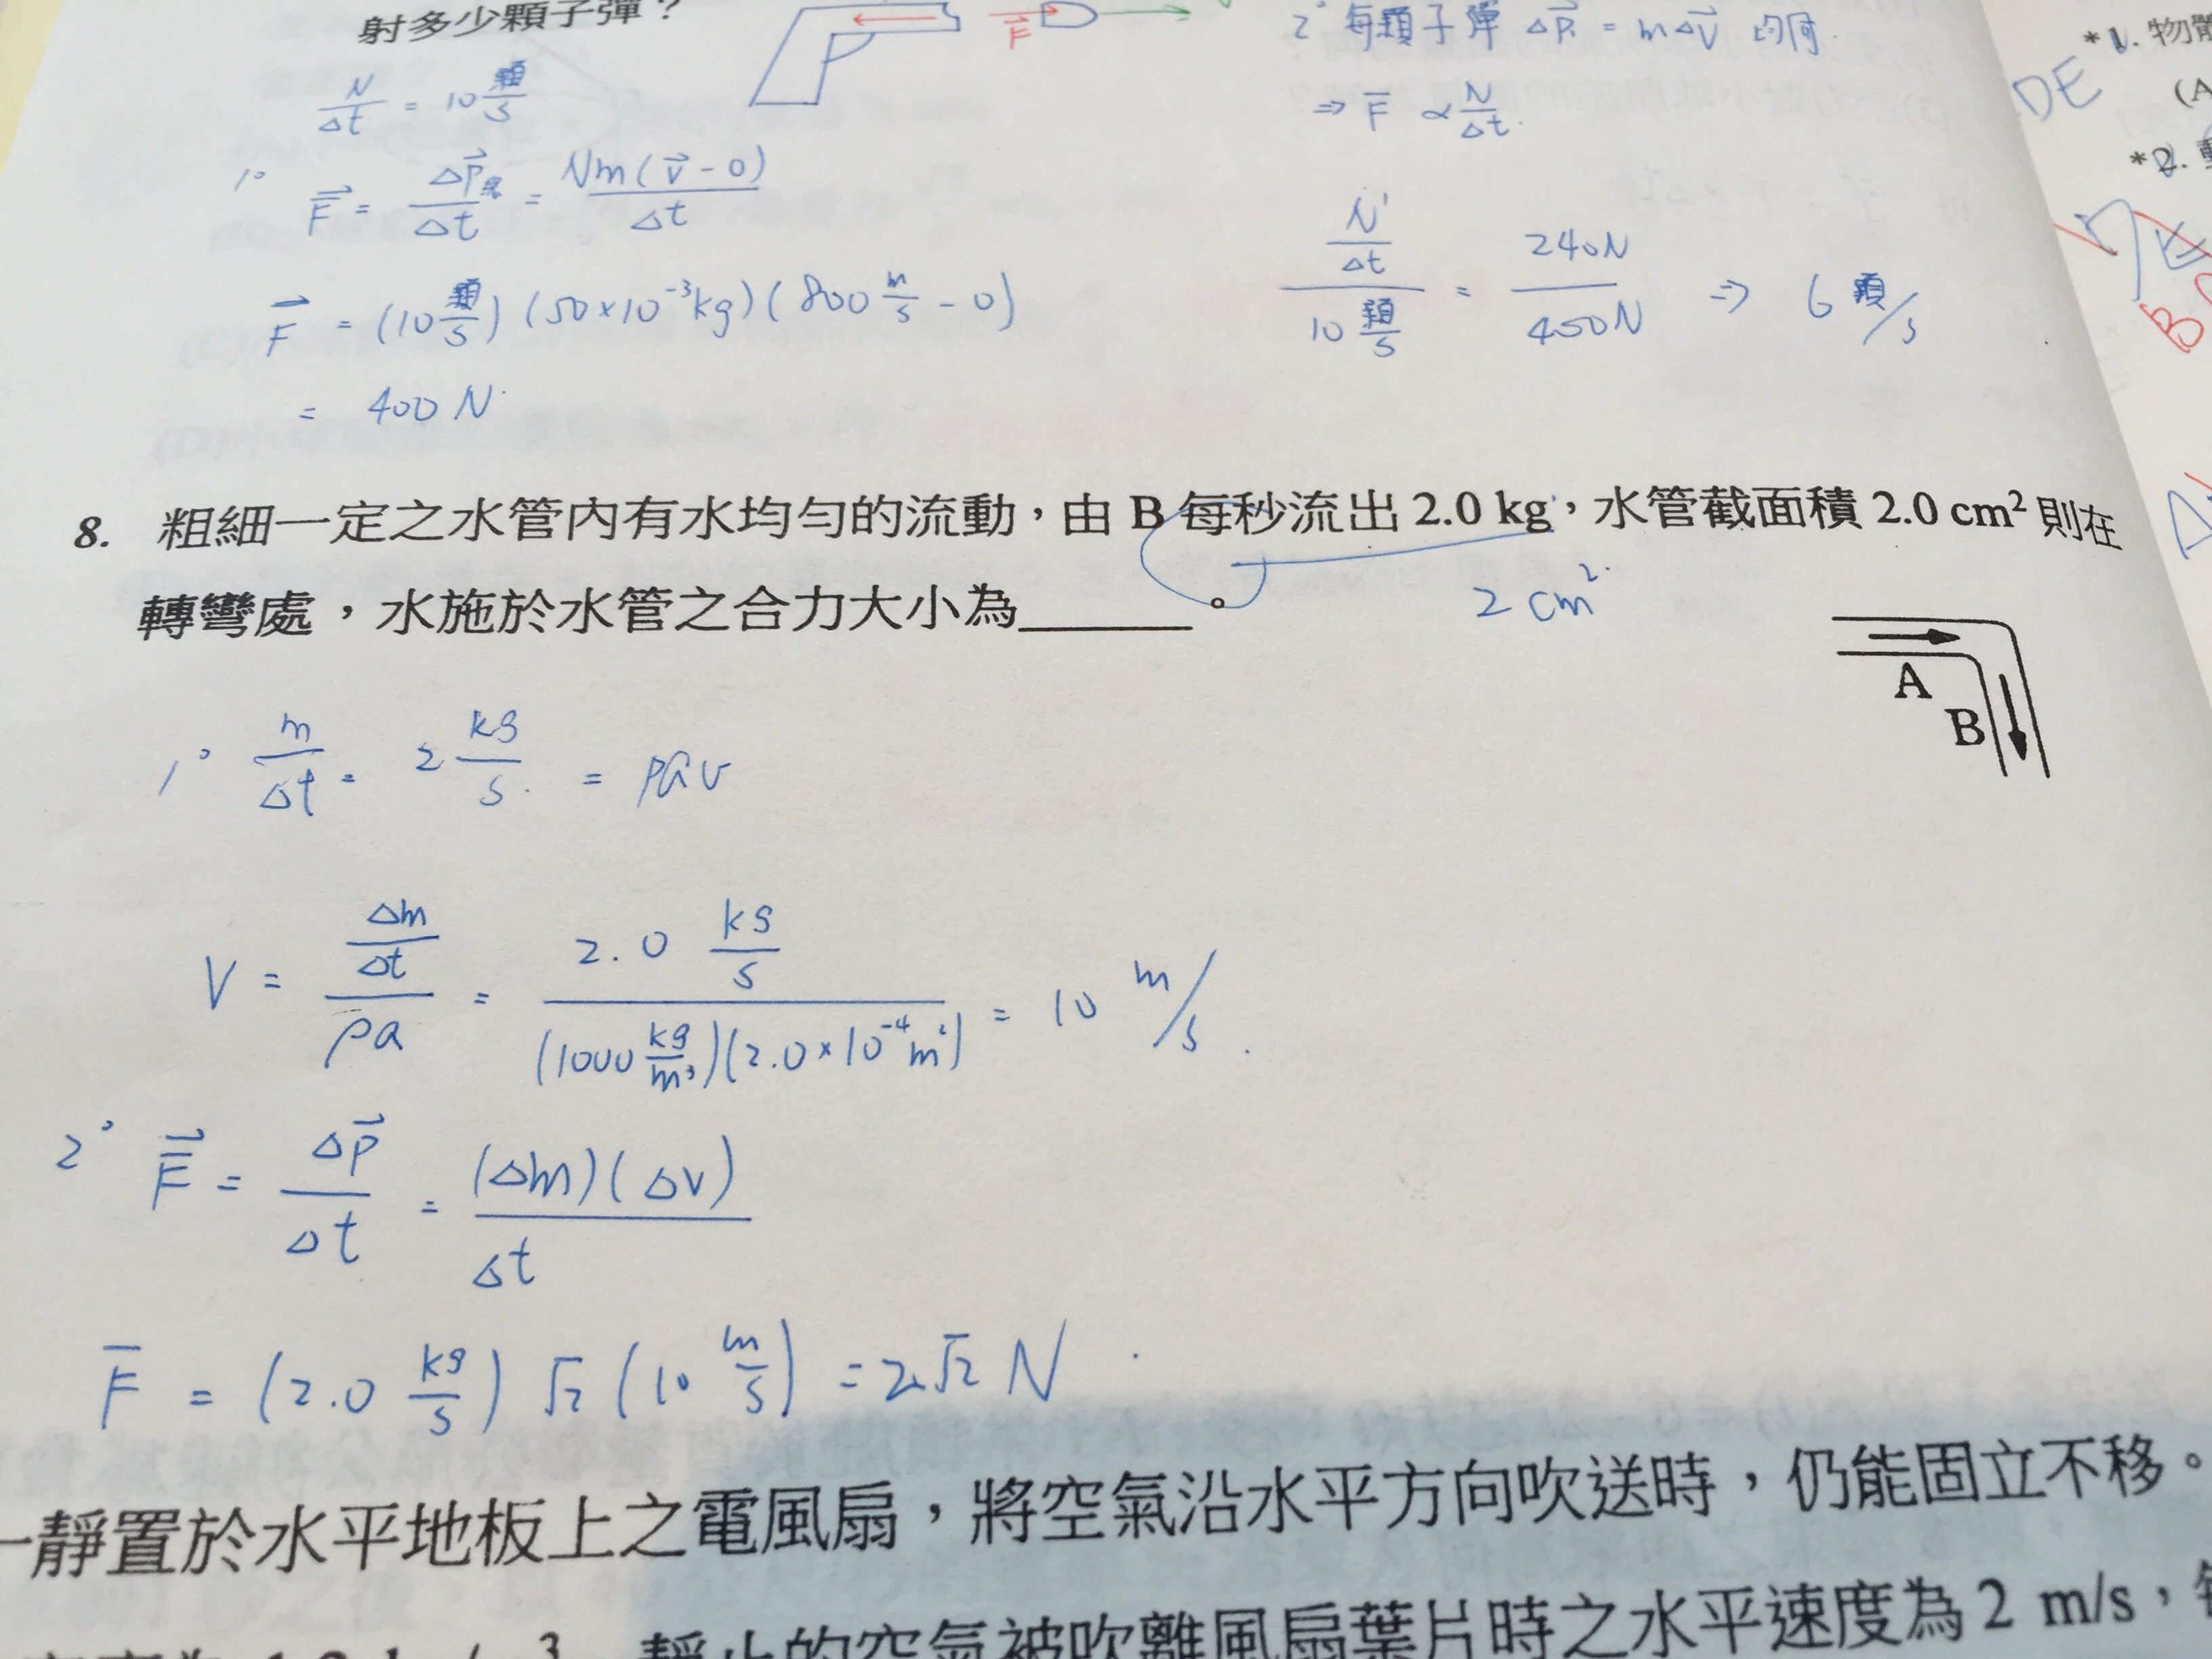 射多少顆子彈？
F
2° 每顆子彈 ΔP = mΔV 均同.
N/Δt = 10 顆/s
⇒ F ∝ N/Δt.
1° F = ΔP/Δt = Nm(v - 0)/Δt
F = (10 顆/s)(50×10⁻³kg)(800 m/s - 0)
= 400 N.
(N'/Δt)/(10 顆/s) = 240N/400N ⇒ 6 顆/s
*1. 物
(A
DE
*2.
B
8. 粗細一定之水管內有水均勻的流動，由 B 每秒流出 2.0 kg，水管截面積 2.0 cm² 則在
轉彎處，水施於水管之合力大小為______。
2 cm²
A
B
1° m/Δt = 2 kg/s = ρav
V = (Δm/Δt)/(ρa) = (2.0 kg/s)/((1000 kg/m³)(2.0×10⁻⁴m²)) = 10 m/s.
2° F = ΔP/Δt = (Δm)(Δv)/Δt
F = (2.0 kg/s) √2 (10 m/s) = 2√2 N.
一靜置於水平地板上之電風扇，將空氣沿水平方向吹送時，仍能固立不移。
靜止的空氣被吹離風扇葉片時之水平速度為 2 m/s，